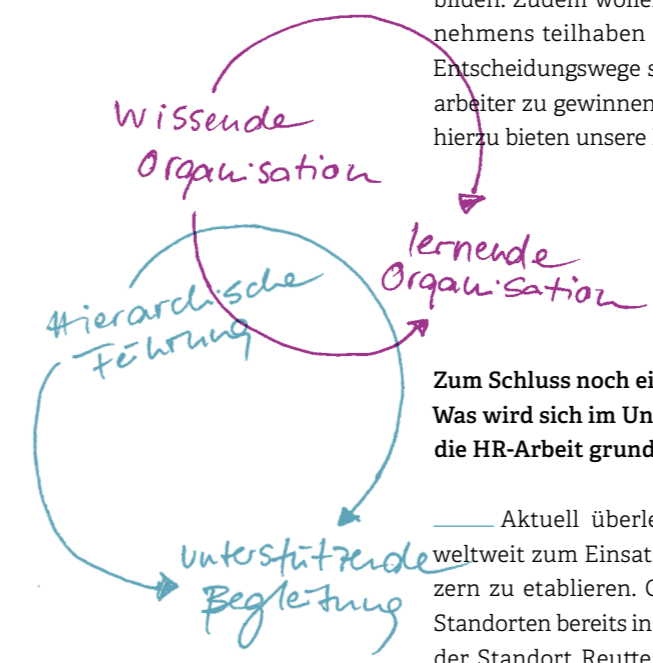 bilden. Zudem wollen
nehmens teilhaben
Entscheidungswege s
arbeiter zu gewinnen
hierzu bieten unsere
Wissende
Organisation
lernende
Organisation
Hierarchische
Führung
unterstützende
Begleitung
Zum Schluss noch ei
Was wird sich im Un
die HR-Arbeit grund
Aktuell überle
weltweit zum Einsat
zern zu etablieren.
Standorten bereits in
der Standort Reutte